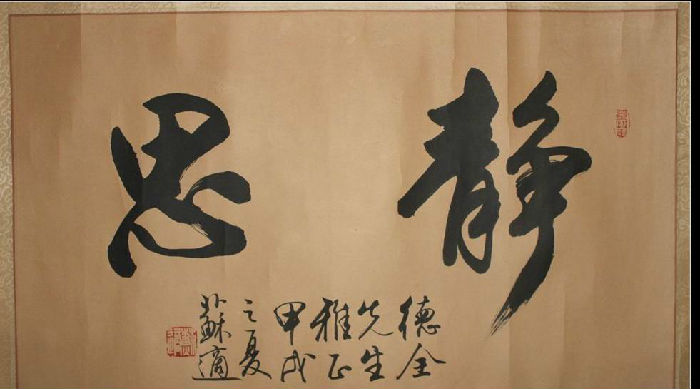 静思
德全
先生
雅正
甲戌
之夏
蘇適